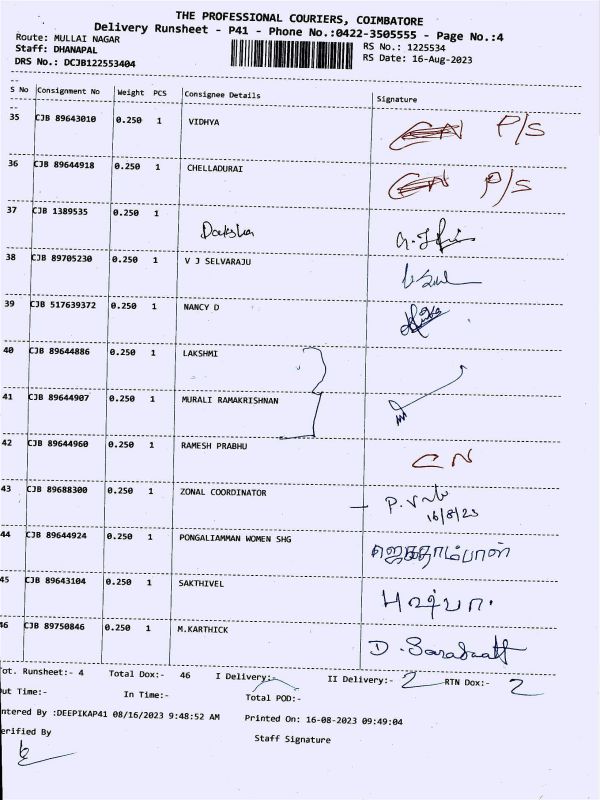 THE PROFESSIONAL COURIERS, COIMBATORE
Delivery Runsheet - P41 - Phone No.:0422-3505555 - Page No.:4
Route: MULLAI NAGAR RS No.: 1225534
Staff: DHANAPAL RS Date: 16-Aug-2023
DRS No.: DCJB122553404
S No Consignment No Weight PCS Consignee Details Signature
35 CJB 89643010 0.250 1 VIDHYA CN P/S
36 CJB 89644918 0.250 1 CHELLADURAI CN P/S
37 CJB 1389535 0.250 1
38 CJB 89705230 0.250 1 V J SELVARAJU
39 CJB 517639372 0.250 1 NANCY D
40 CJB 89644886 0.250 1 LAKSHMI
41 CJB 89644907 0.250 1 MURALI RAMAKRISHNAN
42 CJB 89644960 0.250 1 RAMESH PRABHU CN
43 CJB 89688300 0.250 1 ZONAL COORDINATOR
16/8/23
44 CJB 89644924 0.250 1 PONGALIAMMAN WOMEN SHG
45 CJB 89643104 0.250 1 SAKTHIVEL
46 CJB 89750846 0.250 1 M.KARTHICK
ot. Runsheet:- 4 Total Dox:- 46 I Delivery:- II Delivery:- 2 RTN Dox:- 2
ut Time:- In Time:- Total POD:-
ntered By :DEEPIKAP41 08/16/2023 9:48:52 AM Printed On: 16-08-2023 09:49:04
erified By Staff Signature